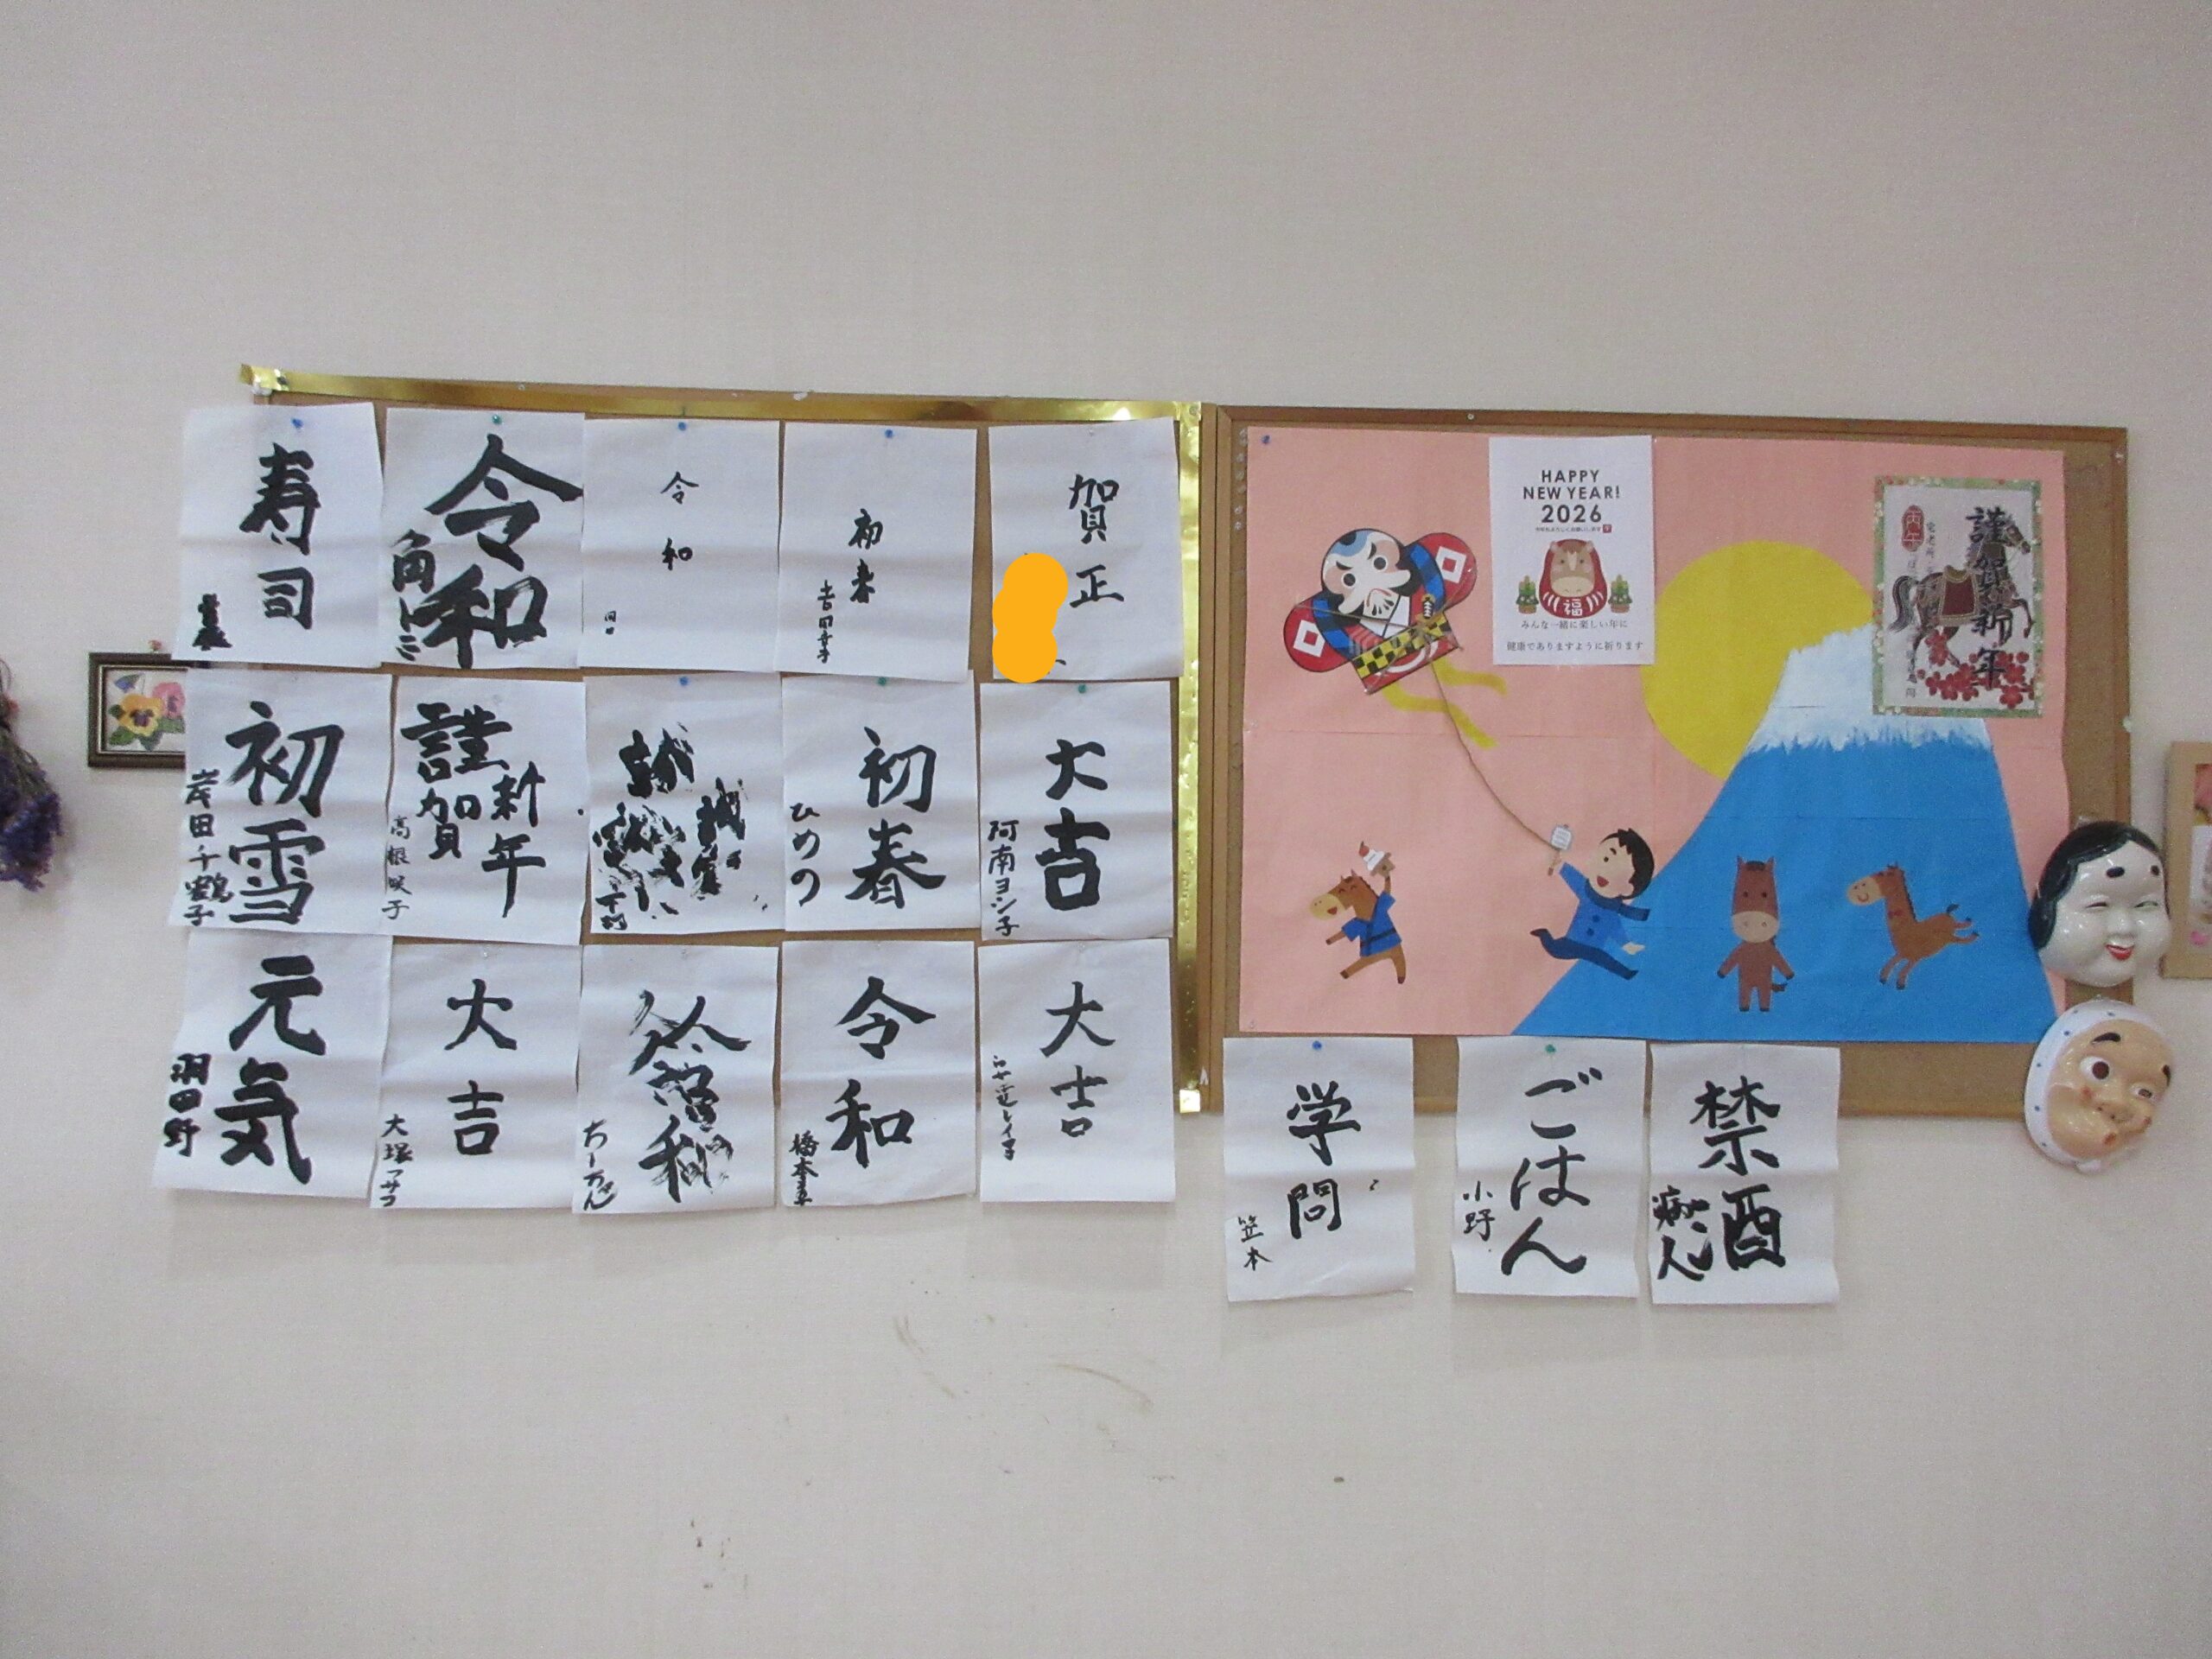 寿司
令和
角
令
和
初春
吉田幸子
賀正
初雪
岸田千鶴子
謹賀
新年
高根咲子
初春
ひめの
大吉
阿南ヨシ子
元気
羽田野
大吉
大塚マサコ
令和
ちーちゃん
令和
橋本
大吉
HAPPY
NEW YEAR!
2026
福
みんな一緒に楽しい年に
健康でありますように祈ります
謹賀新年
学問
笠本
ごはん
小野
禁酒